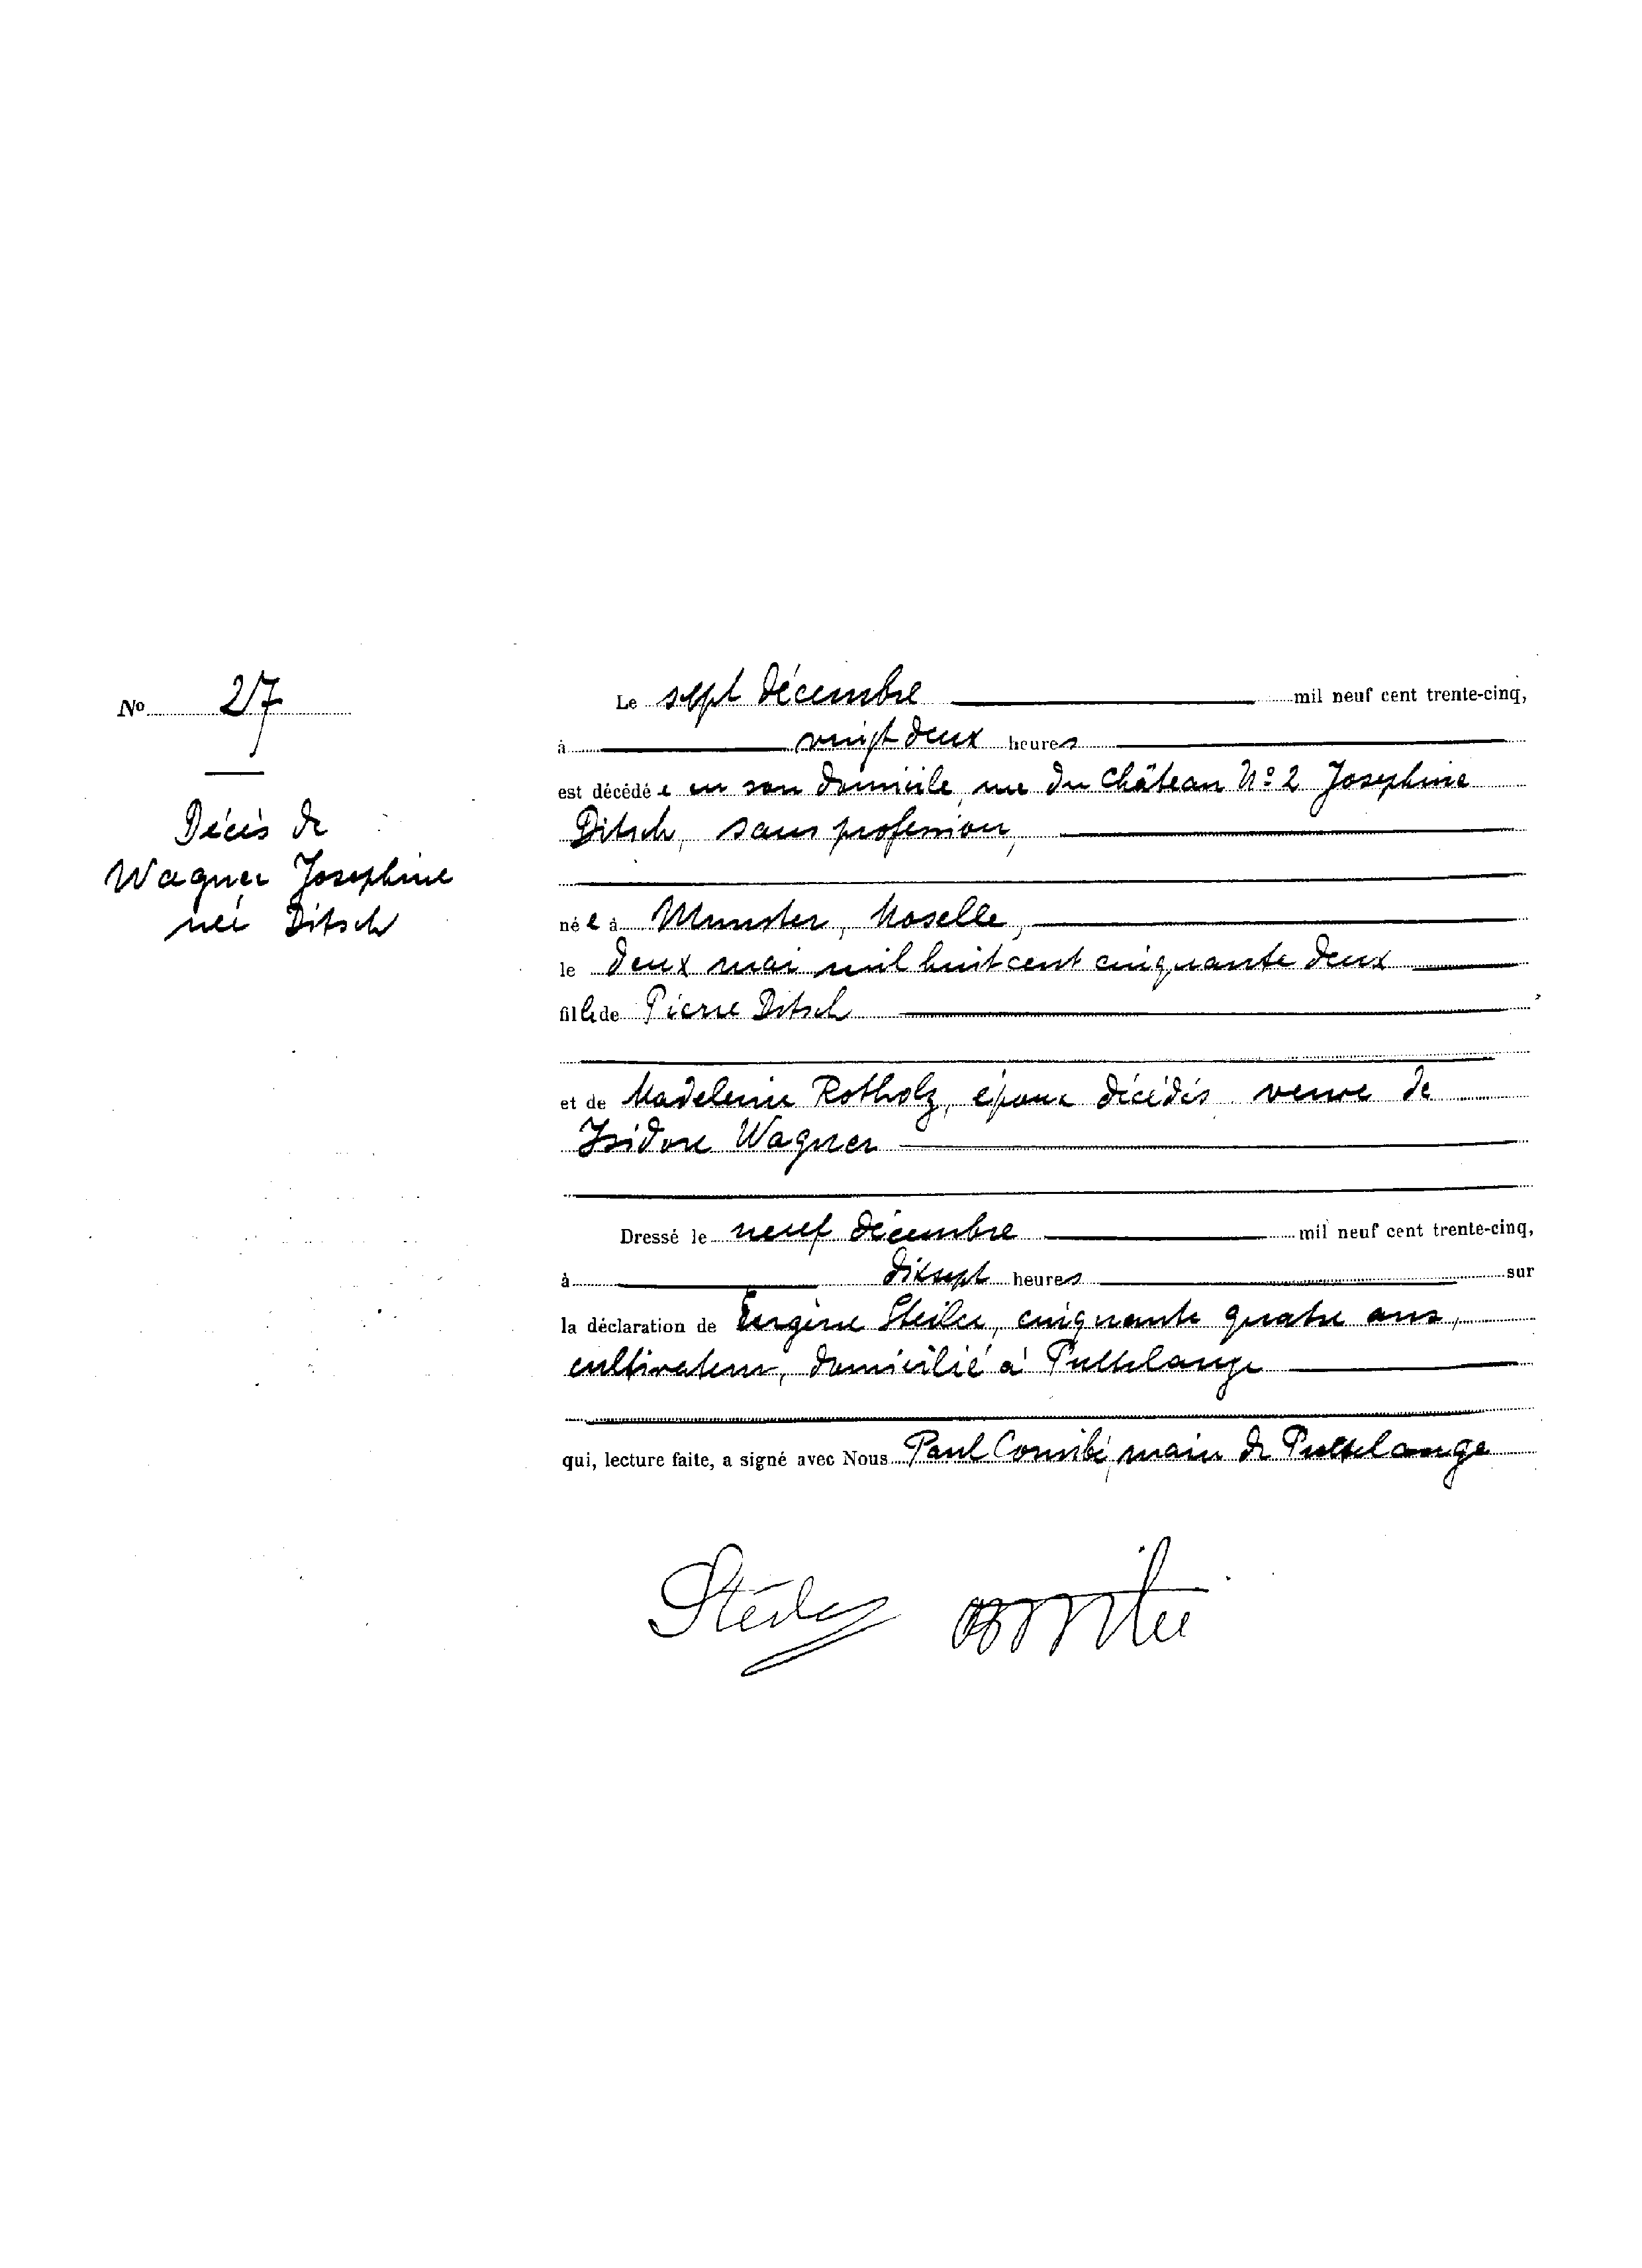 No 27
Décès de
Wagner Josephine
née Ditsch
Le sept décembre mil neuf cent trente-cinq,
à vingt deux heures
est décédée en son domicile, rue du Château No 2 Josephine
Ditsch, sans profession,
née à Munster, Moselle,
le deux mai mil huit cent cinquante deux
fille de Pierre Ditsch
et de Madeleine Rotholz, époux décédés veuve de
Isidore Wagner
Dressé le neuf décembre mil neuf cent trente-cinq,
à dixsept heures sur
la déclaration de Eugène cinquante quatre ans,
cultivateur, domicilié à Puttelange
qui, lecture faite, a signé avec Nous Paul maire de Puttelange